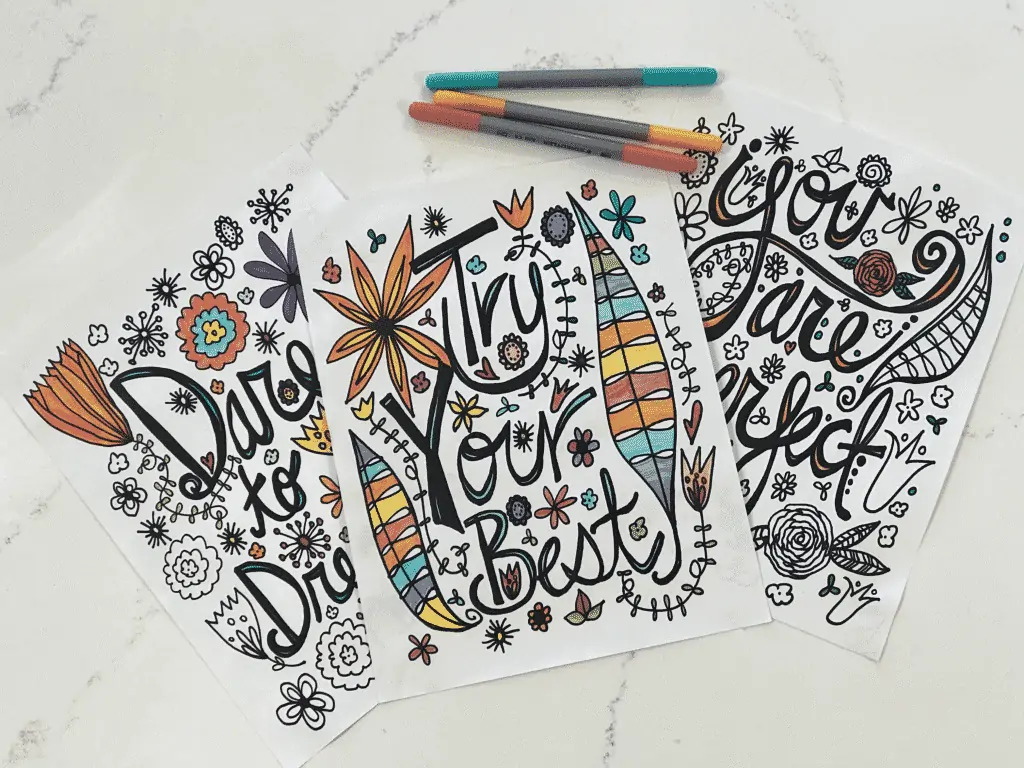 Dare
to
Dre
Try
Your
Best
You
are
erfect